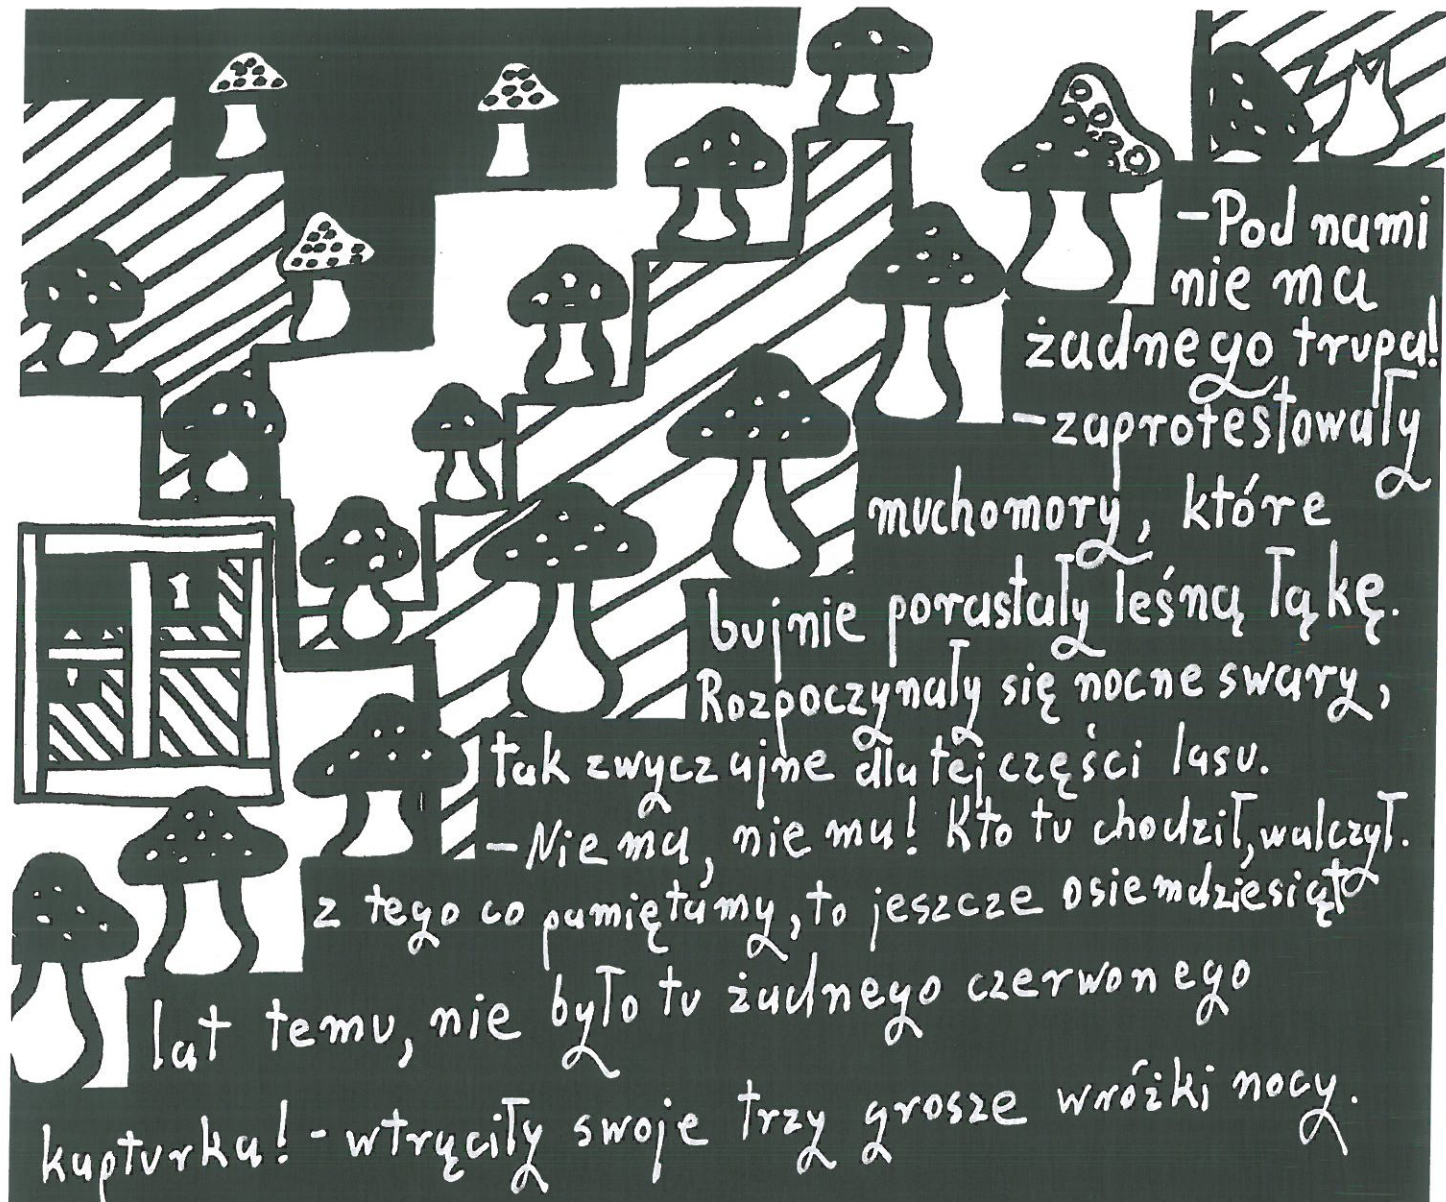 -Pod nami
nie ma
żadnego trupa!
-zaprotestowały
muchomory, które
bujnie porastały leśną łąkę.
Rozpoczynały się nocne swary,
tak zwyczajne dla tej części lasu.
-Nie ma, nie ma! Kto tu chodził, walczył.
z tego co pamiętamy, to jeszcze osiemdziesiąt
lat temu, nie było tu żadnego czerwonego
kapturka! - wtrąciły swoje trzy grosze wróżki nocy.